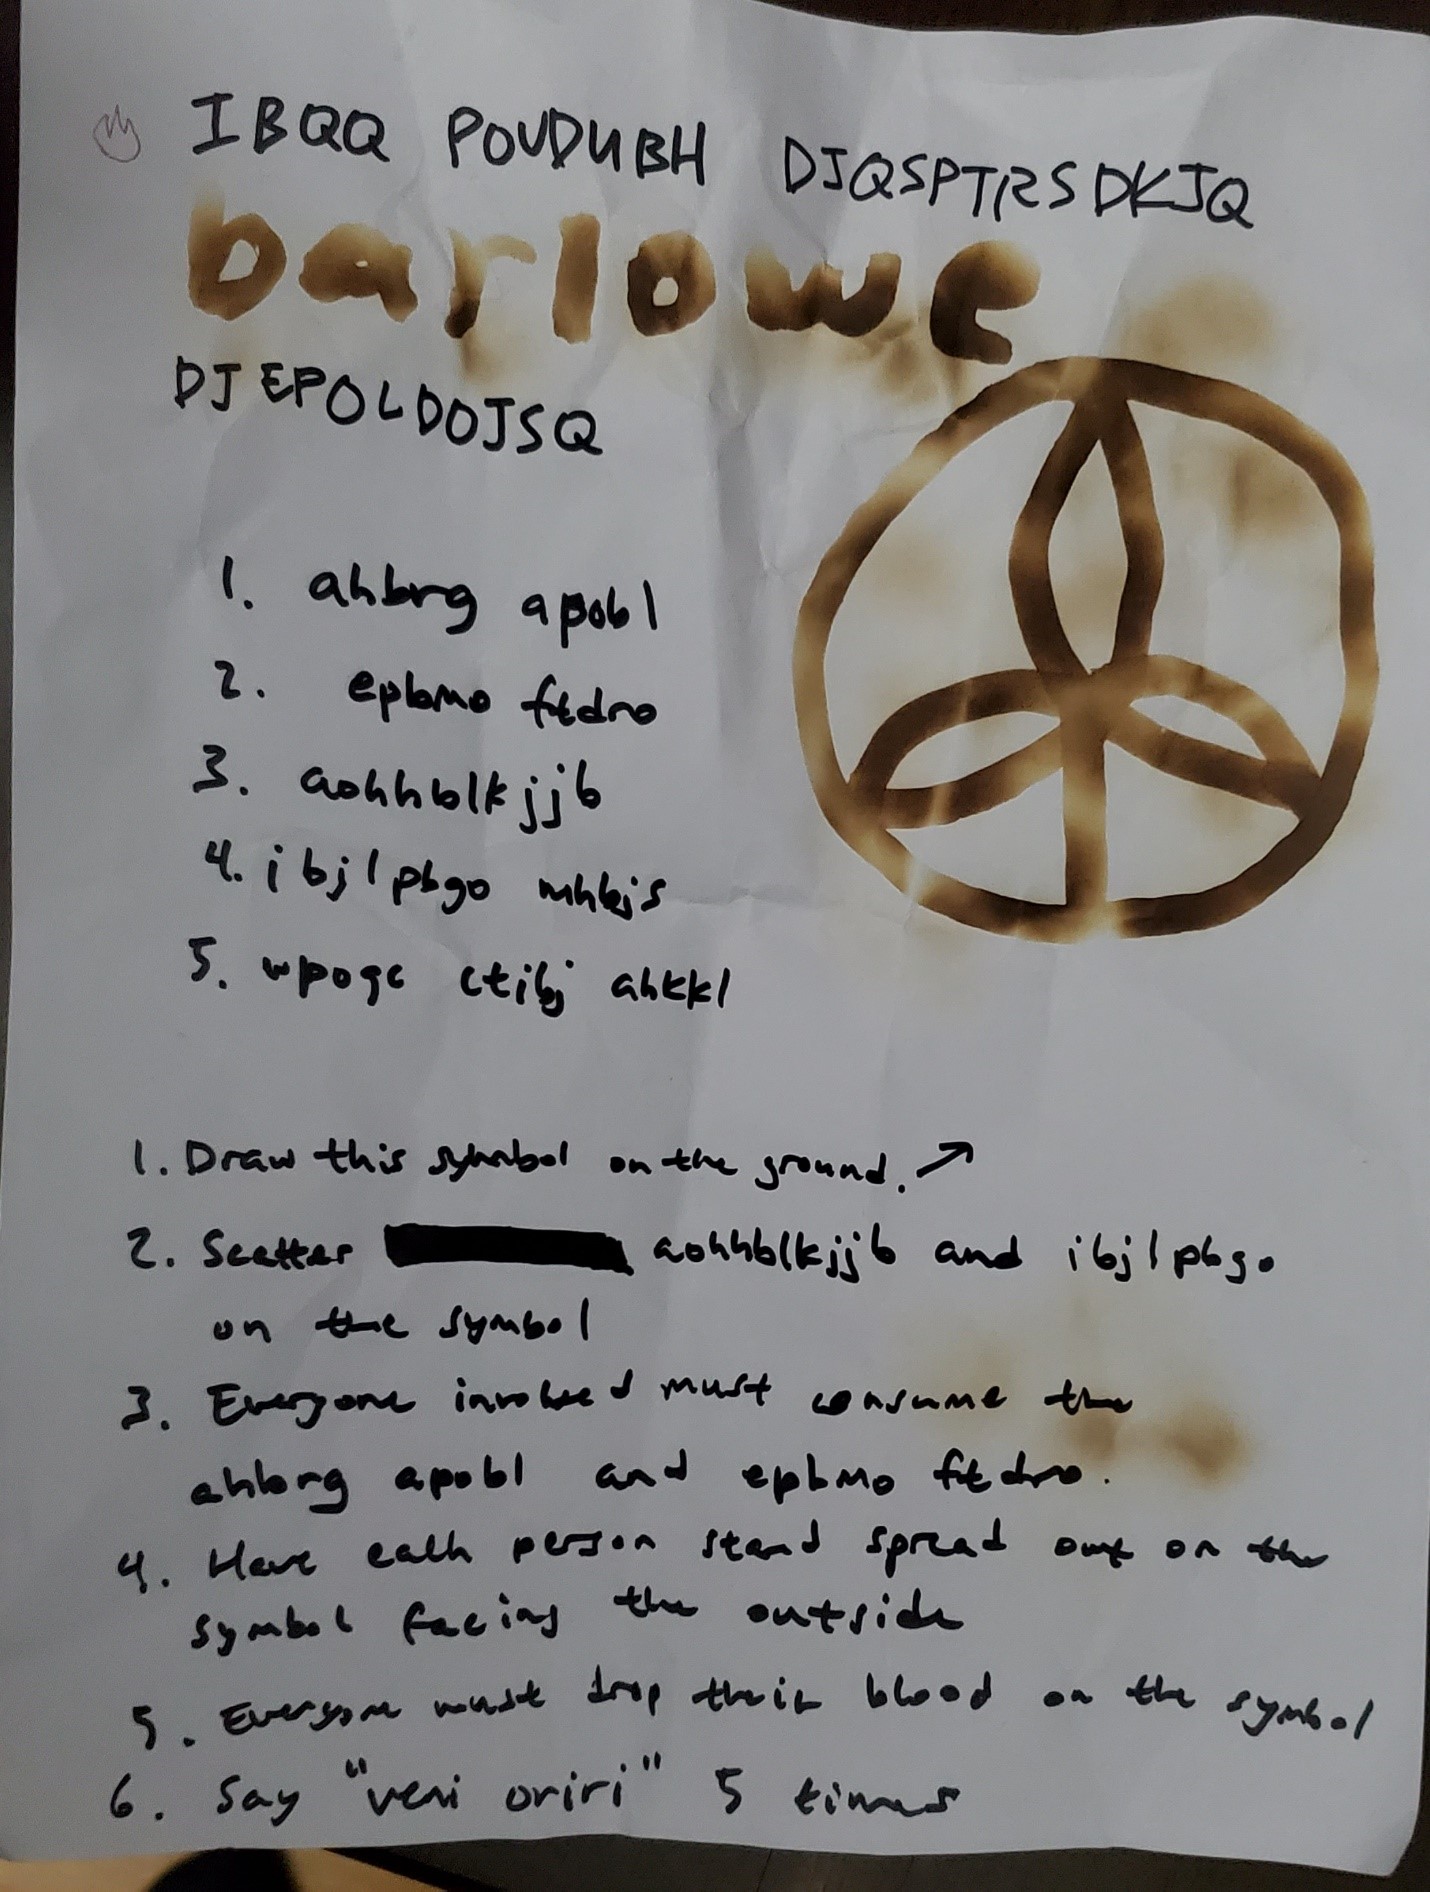 IBQQ POVDUBH DJQSPTRSDKJQ
barlowe
DJEPOLDOJSQ
1. ahbrg apobl
2. epbmo ftdro
3. aohhblkjjb
4. ibjlpbgo mhkjs
5. wpogc ctibj ahkkl
1. Draw this symbol on the ground. ↗
2. Scatter aohhblkjjb and ibjlpbgo
on the symbol
3. Everyone involved must consume the
ahbrg apobl and epbmo ftdro.
4. Have each person stand spread out on the
symbol facing the outside
5. Everyone must drop their blood on the symbol
6. Say "veni oriri" 5 times